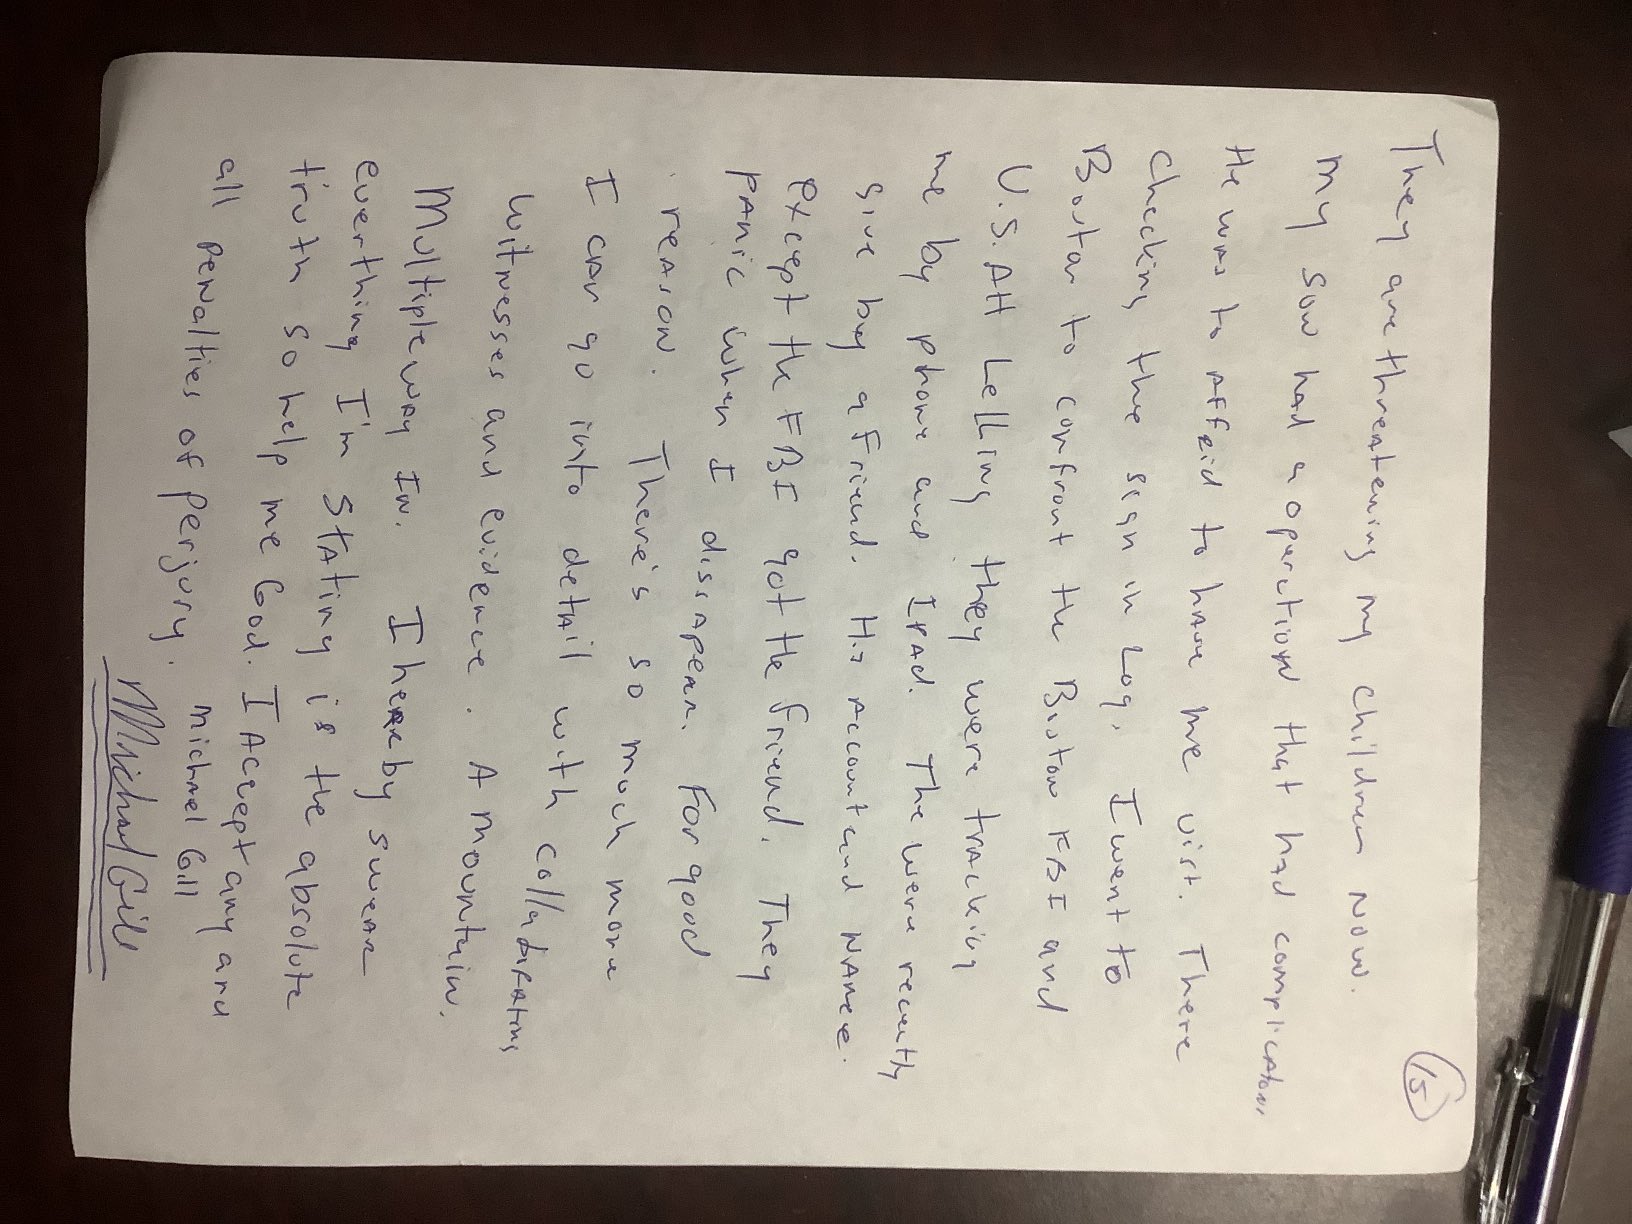 15
They are threatening my children now.
My son had a operction that had complications
He was to affeid to have me visit. There
checking the sign in Log. I went to
Boston to confront the Boston FBI and
U.S. Att Lelling they were tracking
me by phone and IPAd. The were recently
give by a friend. His account and Name.
except the FBI got the friend. They
panic when I dissapear. For good
reason. There's so much more
I can go into detail with colladirations
witnesses and evidence. A mountain.
Multiple way In. I hereby swear
everthing I'm stating is the absolute
truth so help me God. I Accept any and
all penalties of perjury. michael Gill
Michael Gill